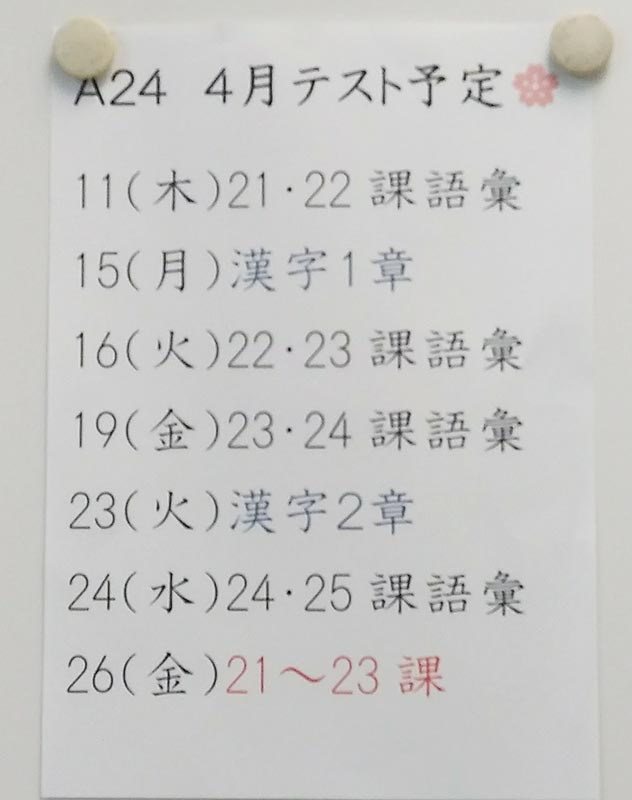 A24 4月テスト予定
11(木)21・22 課語彙
15(月)漢字1章
16(火)22・23 課語彙
19(金)23・24 課語彙
23(火)漢字2章
24(水)24・25 課語彙
26(金)21～23 課